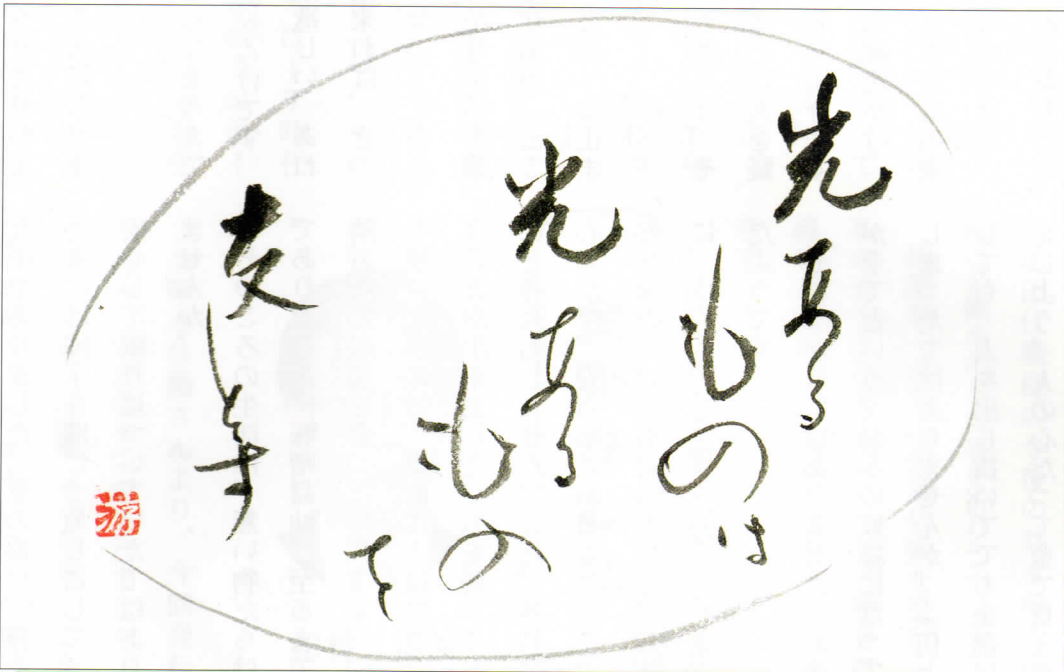 光あるものは
光あるものを
友とす